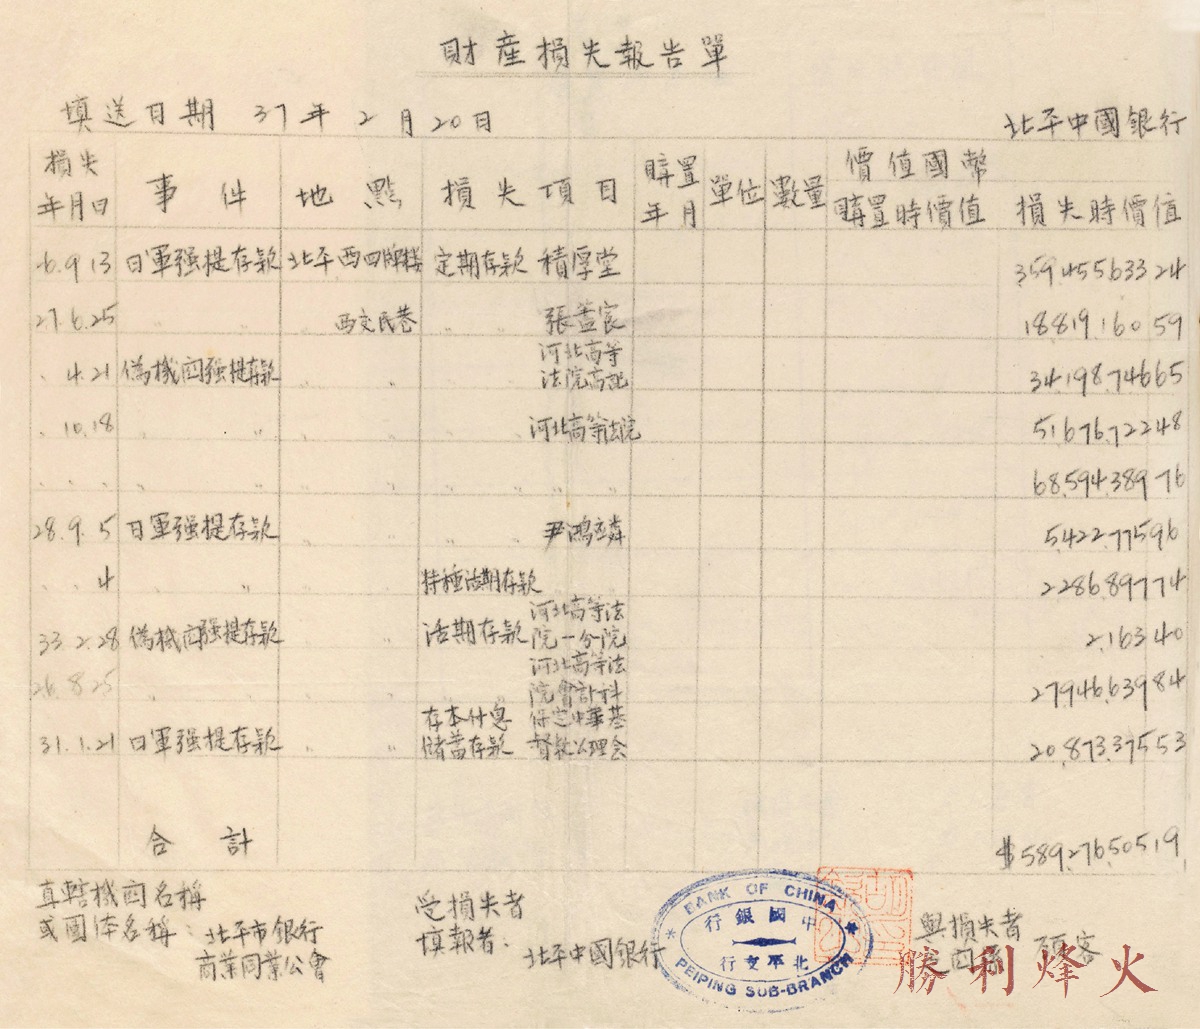 財產損失報告單
填送日期 37年2月20日
北平中國銀行
損失年月日 事件 地點 損失項目 購置年月 單位 數量 價值國幣 購置時價值 損失時價值
6.9.13 日軍强提存款 北平西四牌楼 定期存款 積厚堂 359,455,633.24
27.6.25 〃 〃 西交民巷 〃 〃 張蓋宸 18,819,160.59
〃 4.21 偽機関强提存款 〃 〃 河北高等法院高記 34,198,746.65
〃 10.18 〃 〃 〃 〃 〃 〃 河北高等法院 51,676,722.48
〃 〃 〃 〃 〃 〃 〃 〃 〃 〃 〃 68,594,389.76
28.9.5 日軍强提存款 〃 〃 尹鴻立 5,422,775.96
〃 4 〃 〃 〃 〃 特種活期存款 〃 2,286,897.74
33.2.28 偽機関强提存款 〃 〃 活期存款 河北高等法院一分院 2,163.40
26.8.25 〃 〃 〃 〃 〃 〃 河北高等法院會計科 27,946,639.84
31.1.21 日軍强提存款 〃 〃 存本付息儲蓄存款 保定中華基督教公理会 20,873,375.53
合計 $589,276,505.19
直轄機関名稱
或團体名稱：北平市銀行
商業同業公會
受損失者
填報者：北平中國銀行
BANK OF CHINA
中國銀行
北平支行
PEIPING SUB-BRANCH
與損失者
之関係 顧客
勝利烽火